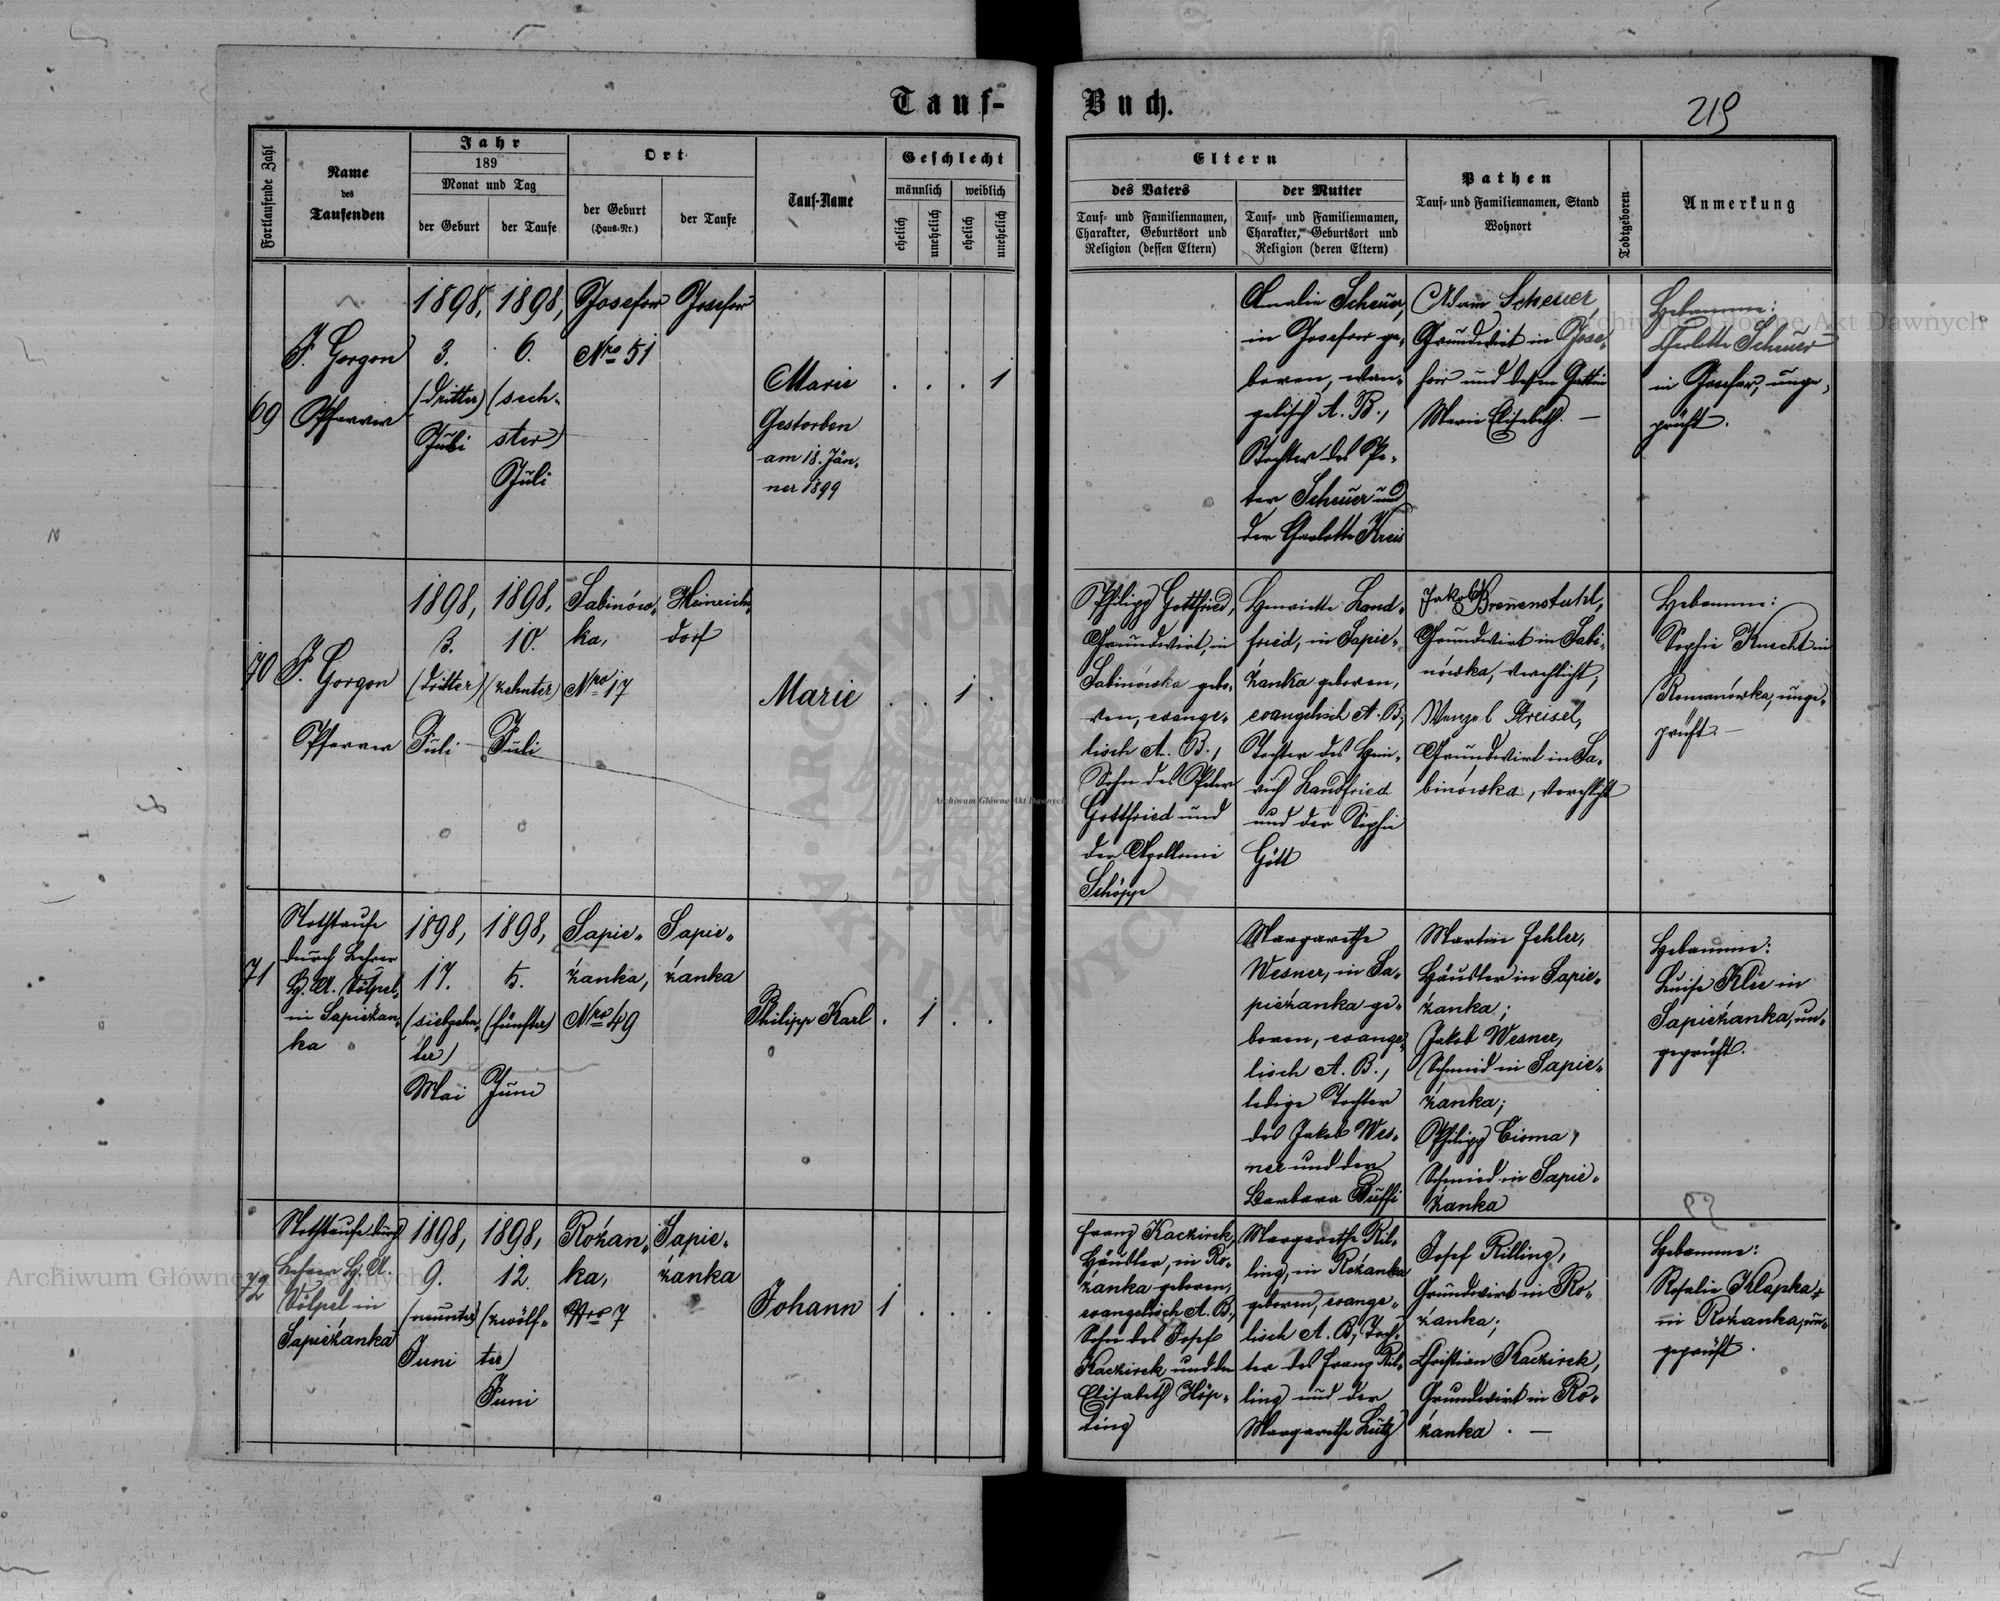 Tauf-
Buch.
219
Fortlaufende Zahl
Name
des
Taufenden
Jahr
189
Monat und Tag
der Geburt
der Taufe
Ort
der Geburt
(Haus-Nr.)
der Taufe
Tauf-Name
Geschlecht
männlich
weiblich
ehelich
unehelich
ehelich
unehelich
Eltern
des Vaters
Tauf- und Familiennamen,
Charakter, Geburtsort und
Religion (dessen Eltern)
der Mutter
Tauf- und Familiennamen,
Charakter, Geburtsort und
Religion (deren Eltern)
Pathen
Tauf- und Familiennamen, Stand
Wohnort
Todtgeboren
Anmerkung
69
F. Gorgon
Pfarrer
1898,
3.
(dritter)
Juli
1898,
6.
(sech-
ster)
Juli
Josefow
Nro 51
Josefow
Marie
Gestorben
am 18. Jän.
ner 1899
. . . 1
Amalie Scheuer,
in Josefow ge-
boren, evan-
gelisch A. B.,
Tochter des Pe-
ter Scheuer und
der Charlotte Kreis
Adam Scheuer,
Grundwirt in Jose-
fow und dessen Gattin
Marie Elisabeth. —
Hebamme:
Charlotte Scheuer
in Josefow, unge-
prüft.
70
F. Gorgon
Pfarrer
1898,
3.
(dritter)
Juli
1898,
10.
(zehnter)
Juli
Sabinów-
ka,
Nro 17
Heinrichs-
dorf
Marie
. . 1 .
Philipp Gottfried,
Grundwirt, in
Sabinówka gebo-
ren, evange-
lisch A. B.,
Sohn des Peter
Gottfried und
der Apollonia
Schöpp
Henriette Land-
fried, in Sapie-
żanka geboren,
evangelisch A. B.,
Tochter des Hein-
rich Landfried
und der Sophie
Gött
Jakob Brennenstuhl,
Grundwirt in Sabi-
nówka, verehlicht,
Wenzel Streisel,
Grundwirt in Sa-
binówka, verehlicht
Hebamme:
Sophie Knecht in
Romanówka, unge-
prüft. —
71
Nothtaufe
durch Lehrer
H. A. Völpel
in Sapieżan-
ka
1898,
17.
(siebzehn-
ter)
Mai
1898,
5.
(fünfter)
Juni
Sapie-
żanka,
Nro 49
Sapie-
żanka
Philipp Karl
. 1 . .
Margarethe
Wesner, in Sa-
pieżanka ge-
boren, evange-
lisch A. B.,
ledige Tochter
des Jakob Wes-
ner und der
Barbara
Martin Fehler,
Häusler in Sapie-
żanka;
Jakob Wesner,
Schmied in Sapie-
żanka;
Philipp Cioma,
Schmied in Sapie-
żanka
Hebamme:
Luise Klee in
Sapieżanka, un-
geprüft.
72
Nothtaufe durch
Lehrer H. A.
Völpel in
Sapieżanka
1898,
9.
(neunter)
Juni
1898,
12.
(zwölf-
ter)
Juni
Rożan-
ka,
Nro 7
Sapie-
żanka
Johann
1 . . .
Franz Kaczirek,
Häusler, in Ro-
żanka geboren,
evangelisch A. B.,
Sohn des Josef
Kaczirek und der
Elisabeth Höp-
ting
Margarethe Ril-
ling, in Rożanka
geboren, evange-
lisch A. B., Toch-
ter des Franz Ril-
ling und der
Margarethe Lutz
Josef Rilling,
Grundwirt in Ro-
żanka;
Christian Kaczirek,
Grundwirt in Ro-
żanka. —
Hebamme:
Rosalie Klapka
in Rożanka, un-
geprüft.
Archiwum Główne Akt Dawnych
Archiwum Główne Akt Dawnych
Archiwum Główne Akt Dawnych